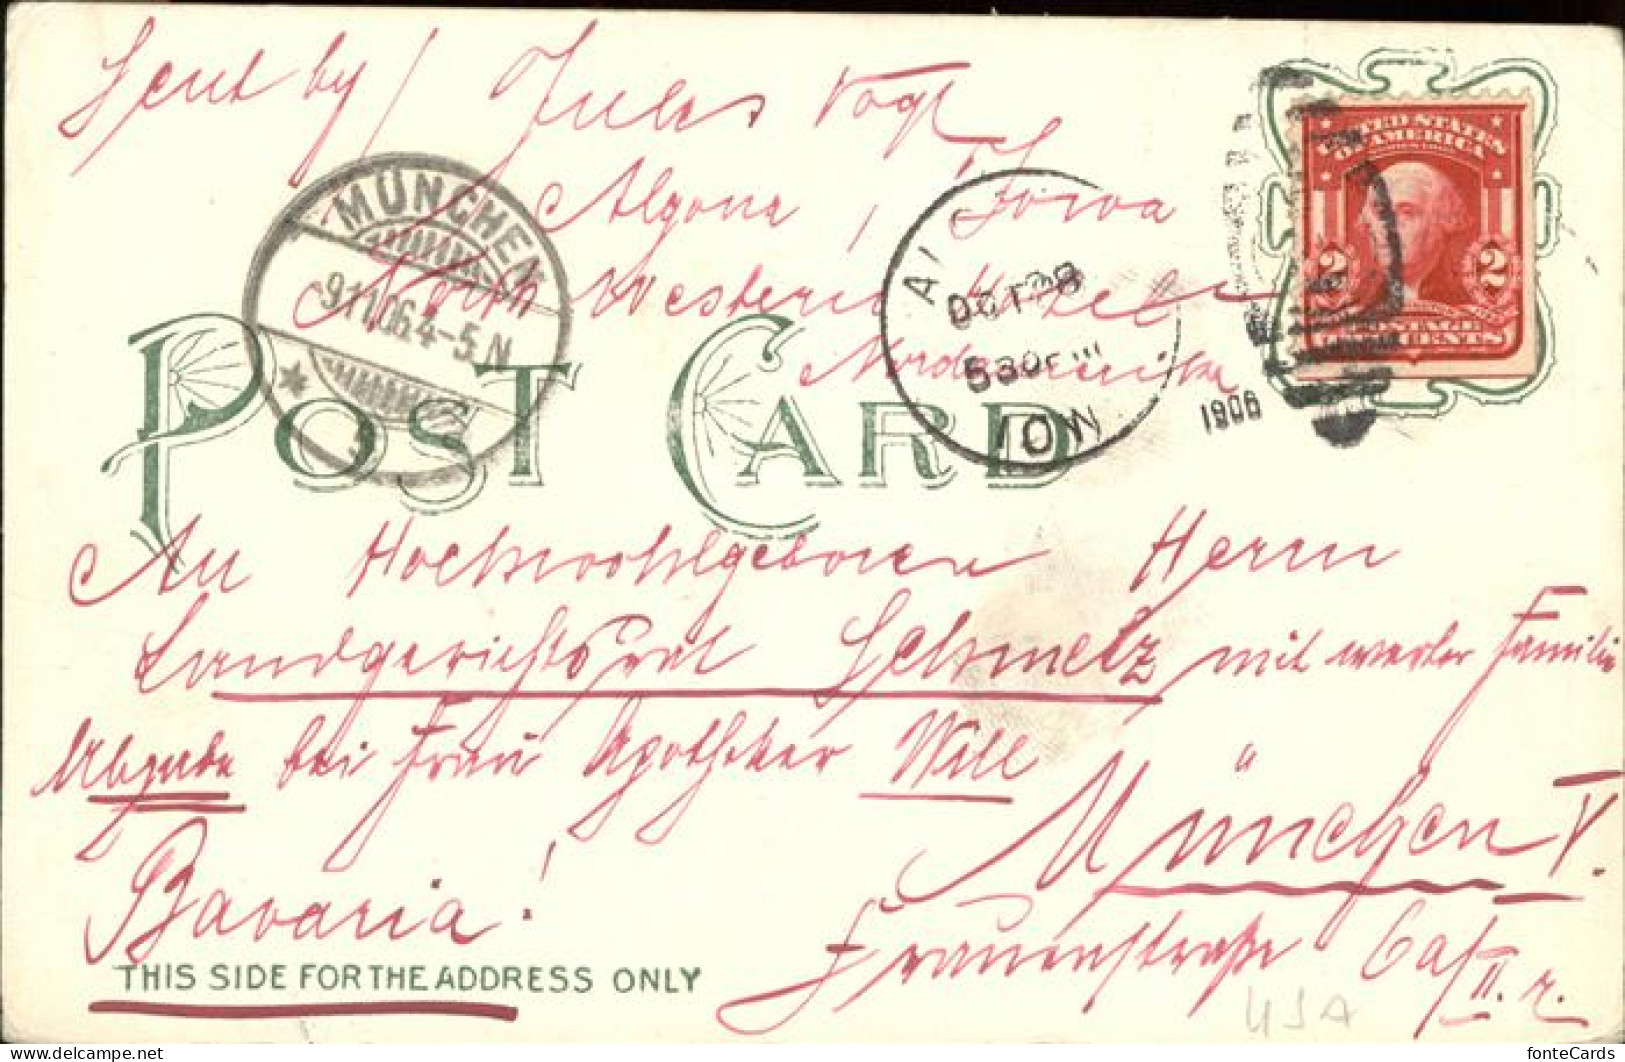 Sent by / Jules Vogt
Algona, Iowa
North Western Hotel
Nordamerika
MÜNCHEN
9.11.06.4-5.N
OCT 28
530 PM
IOW
1906
UNITED STATES
OF AMERICA
2 2
POSTAGE
CENTS
POST CARD
An Hochwohlgeboren Herrn
Landgerichtsrat Schmelz mit werter Familie
Abgabe bei Frau Apotheker Will
München V.
Bavaria!
Frauenstraße 6a/II. r.
THIS SIDE FOR THE ADDRESS ONLY
USA
fonteCards